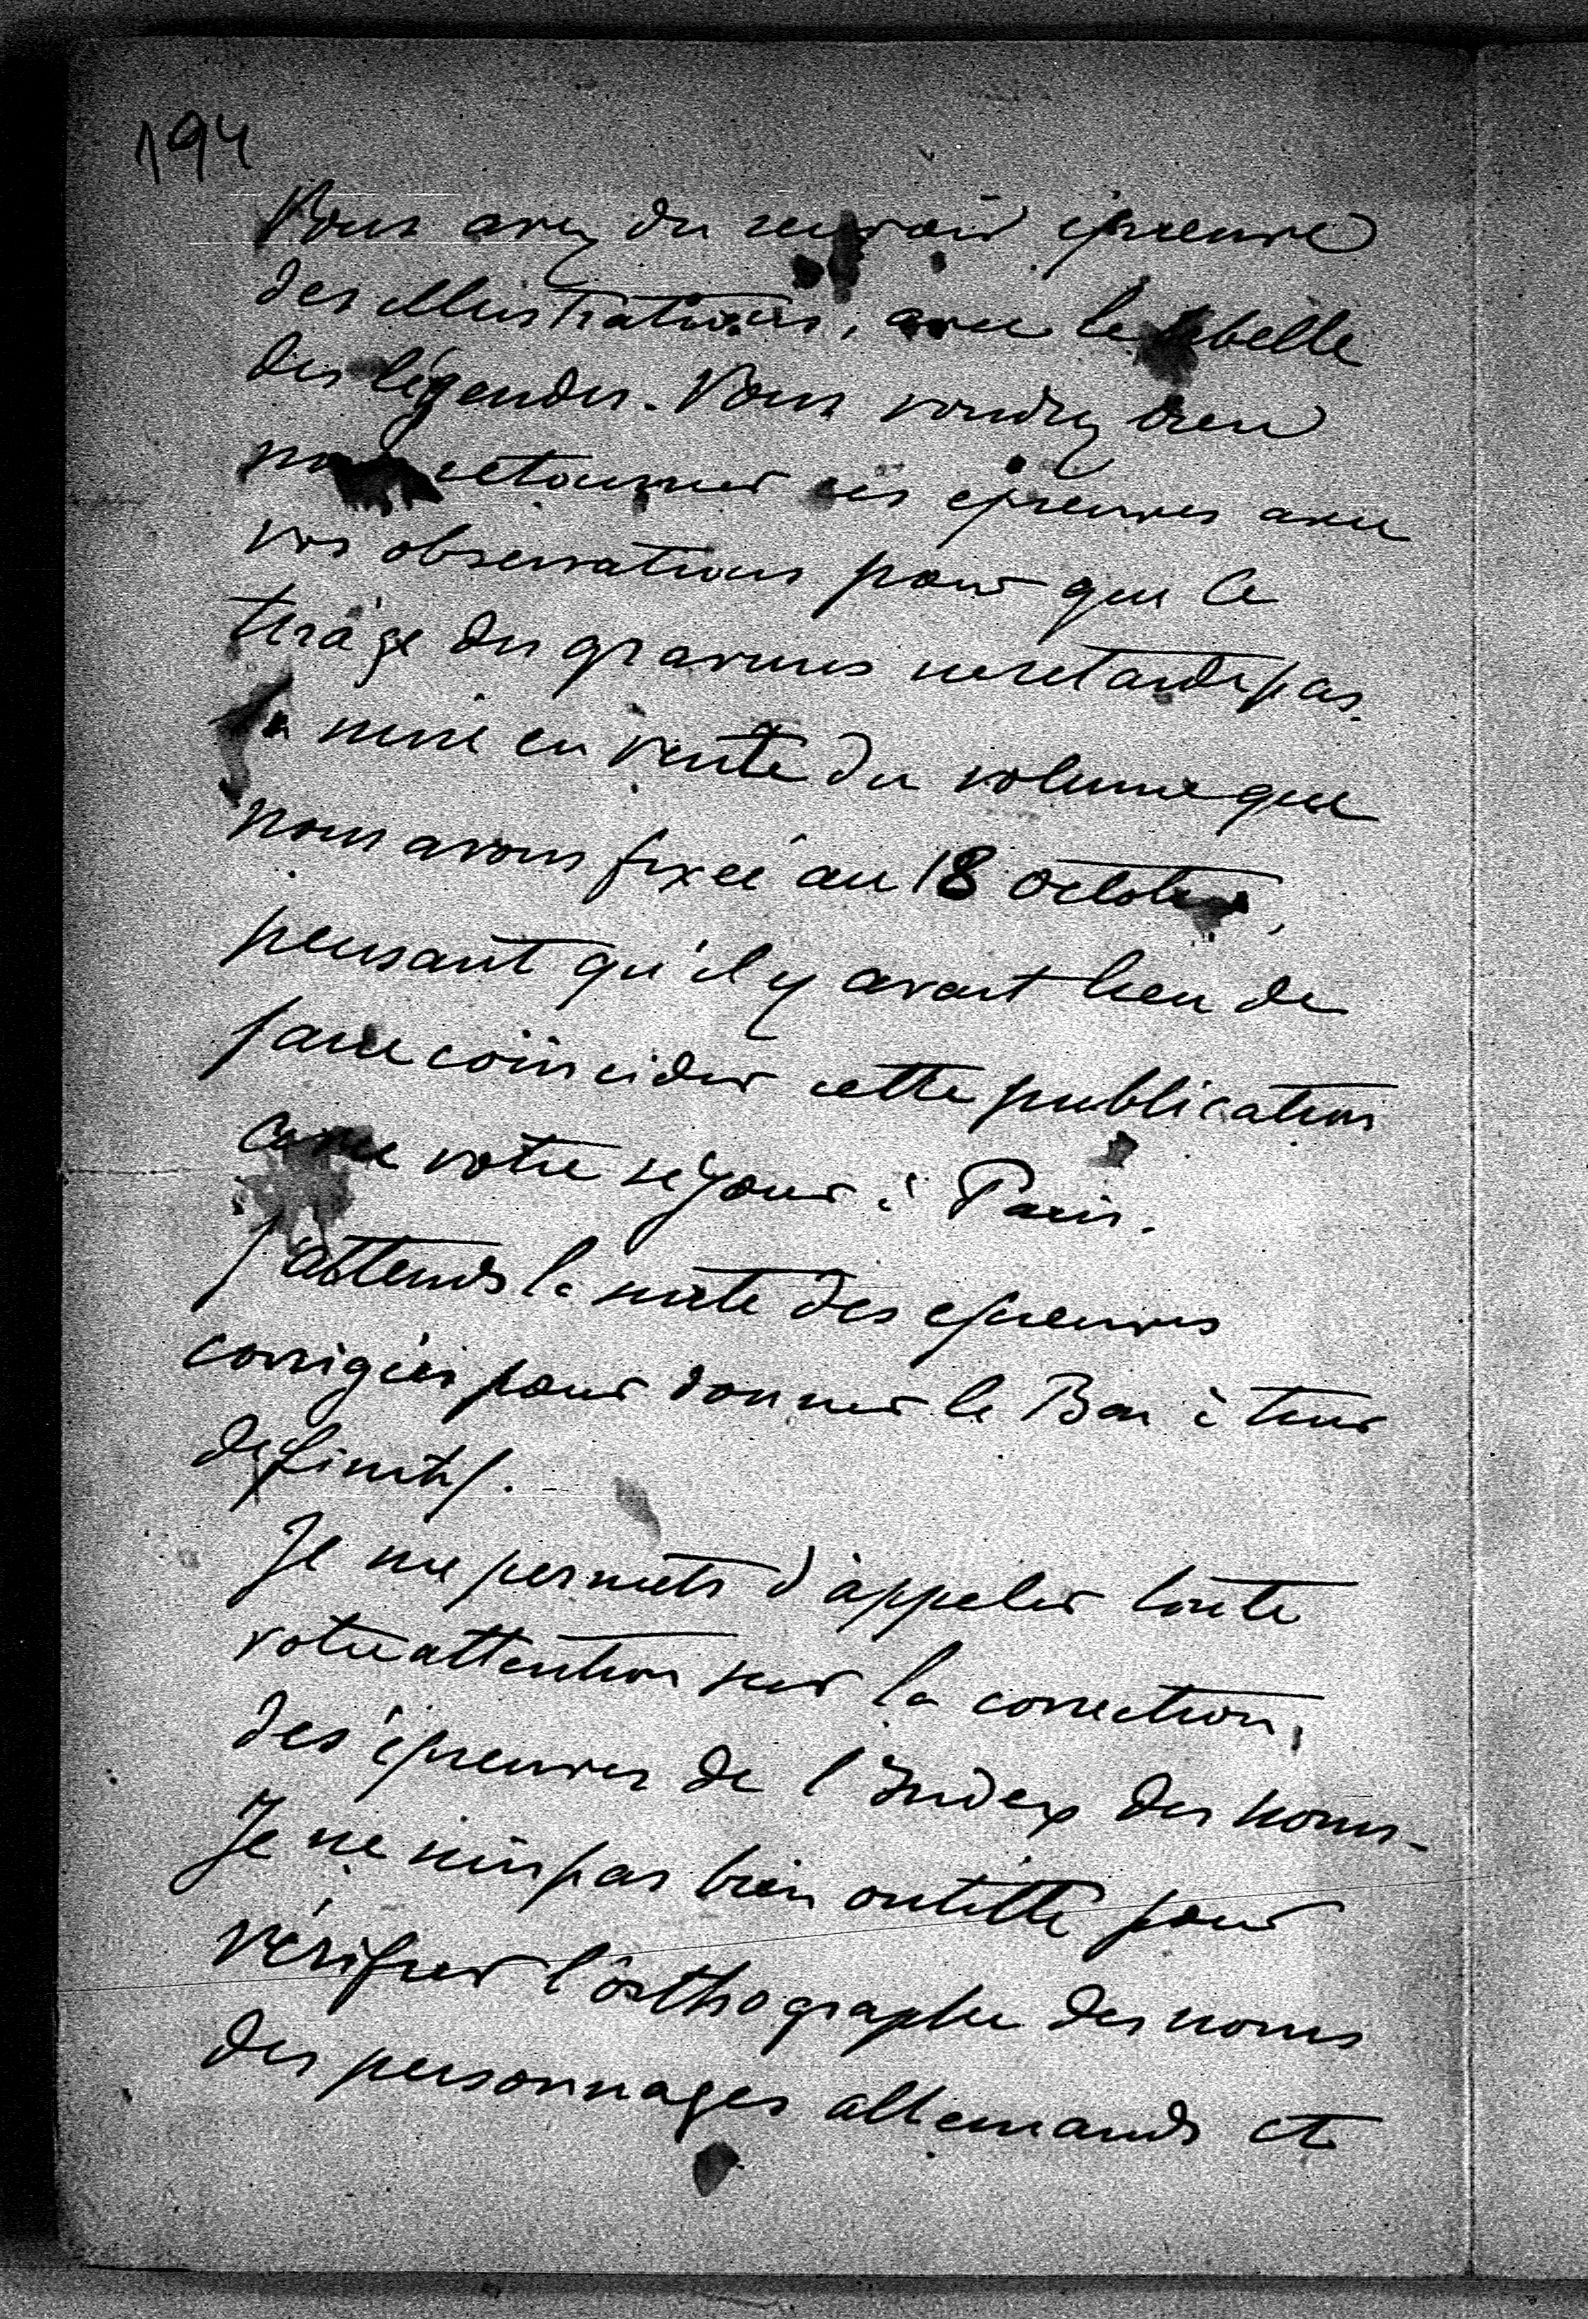 194
Vous avez du recevoir épreuve
des illustrations, avec le libellé
des légendes. Vous voudrez bien
nous retourner ces épreuves avec
vos observations pour que le
tirage des gravures ne retarde pas
la mise en vente du volume que
nous avons fixée au 18 octobre,
pensant qu'il y avait lieu de
faire coïncider cette publication
avec votre séjour à Paris.
J'attends la suite des épreuves
corrigées pour donner le Bon à tirer
definitif.
Je me permets d'appeler toute
votre attention sur la correction,
des épreuves de l'Index des noms.
Je ne suis pas bien outillé pour
vérifier l'orthographe des noms
des personnages allemands et